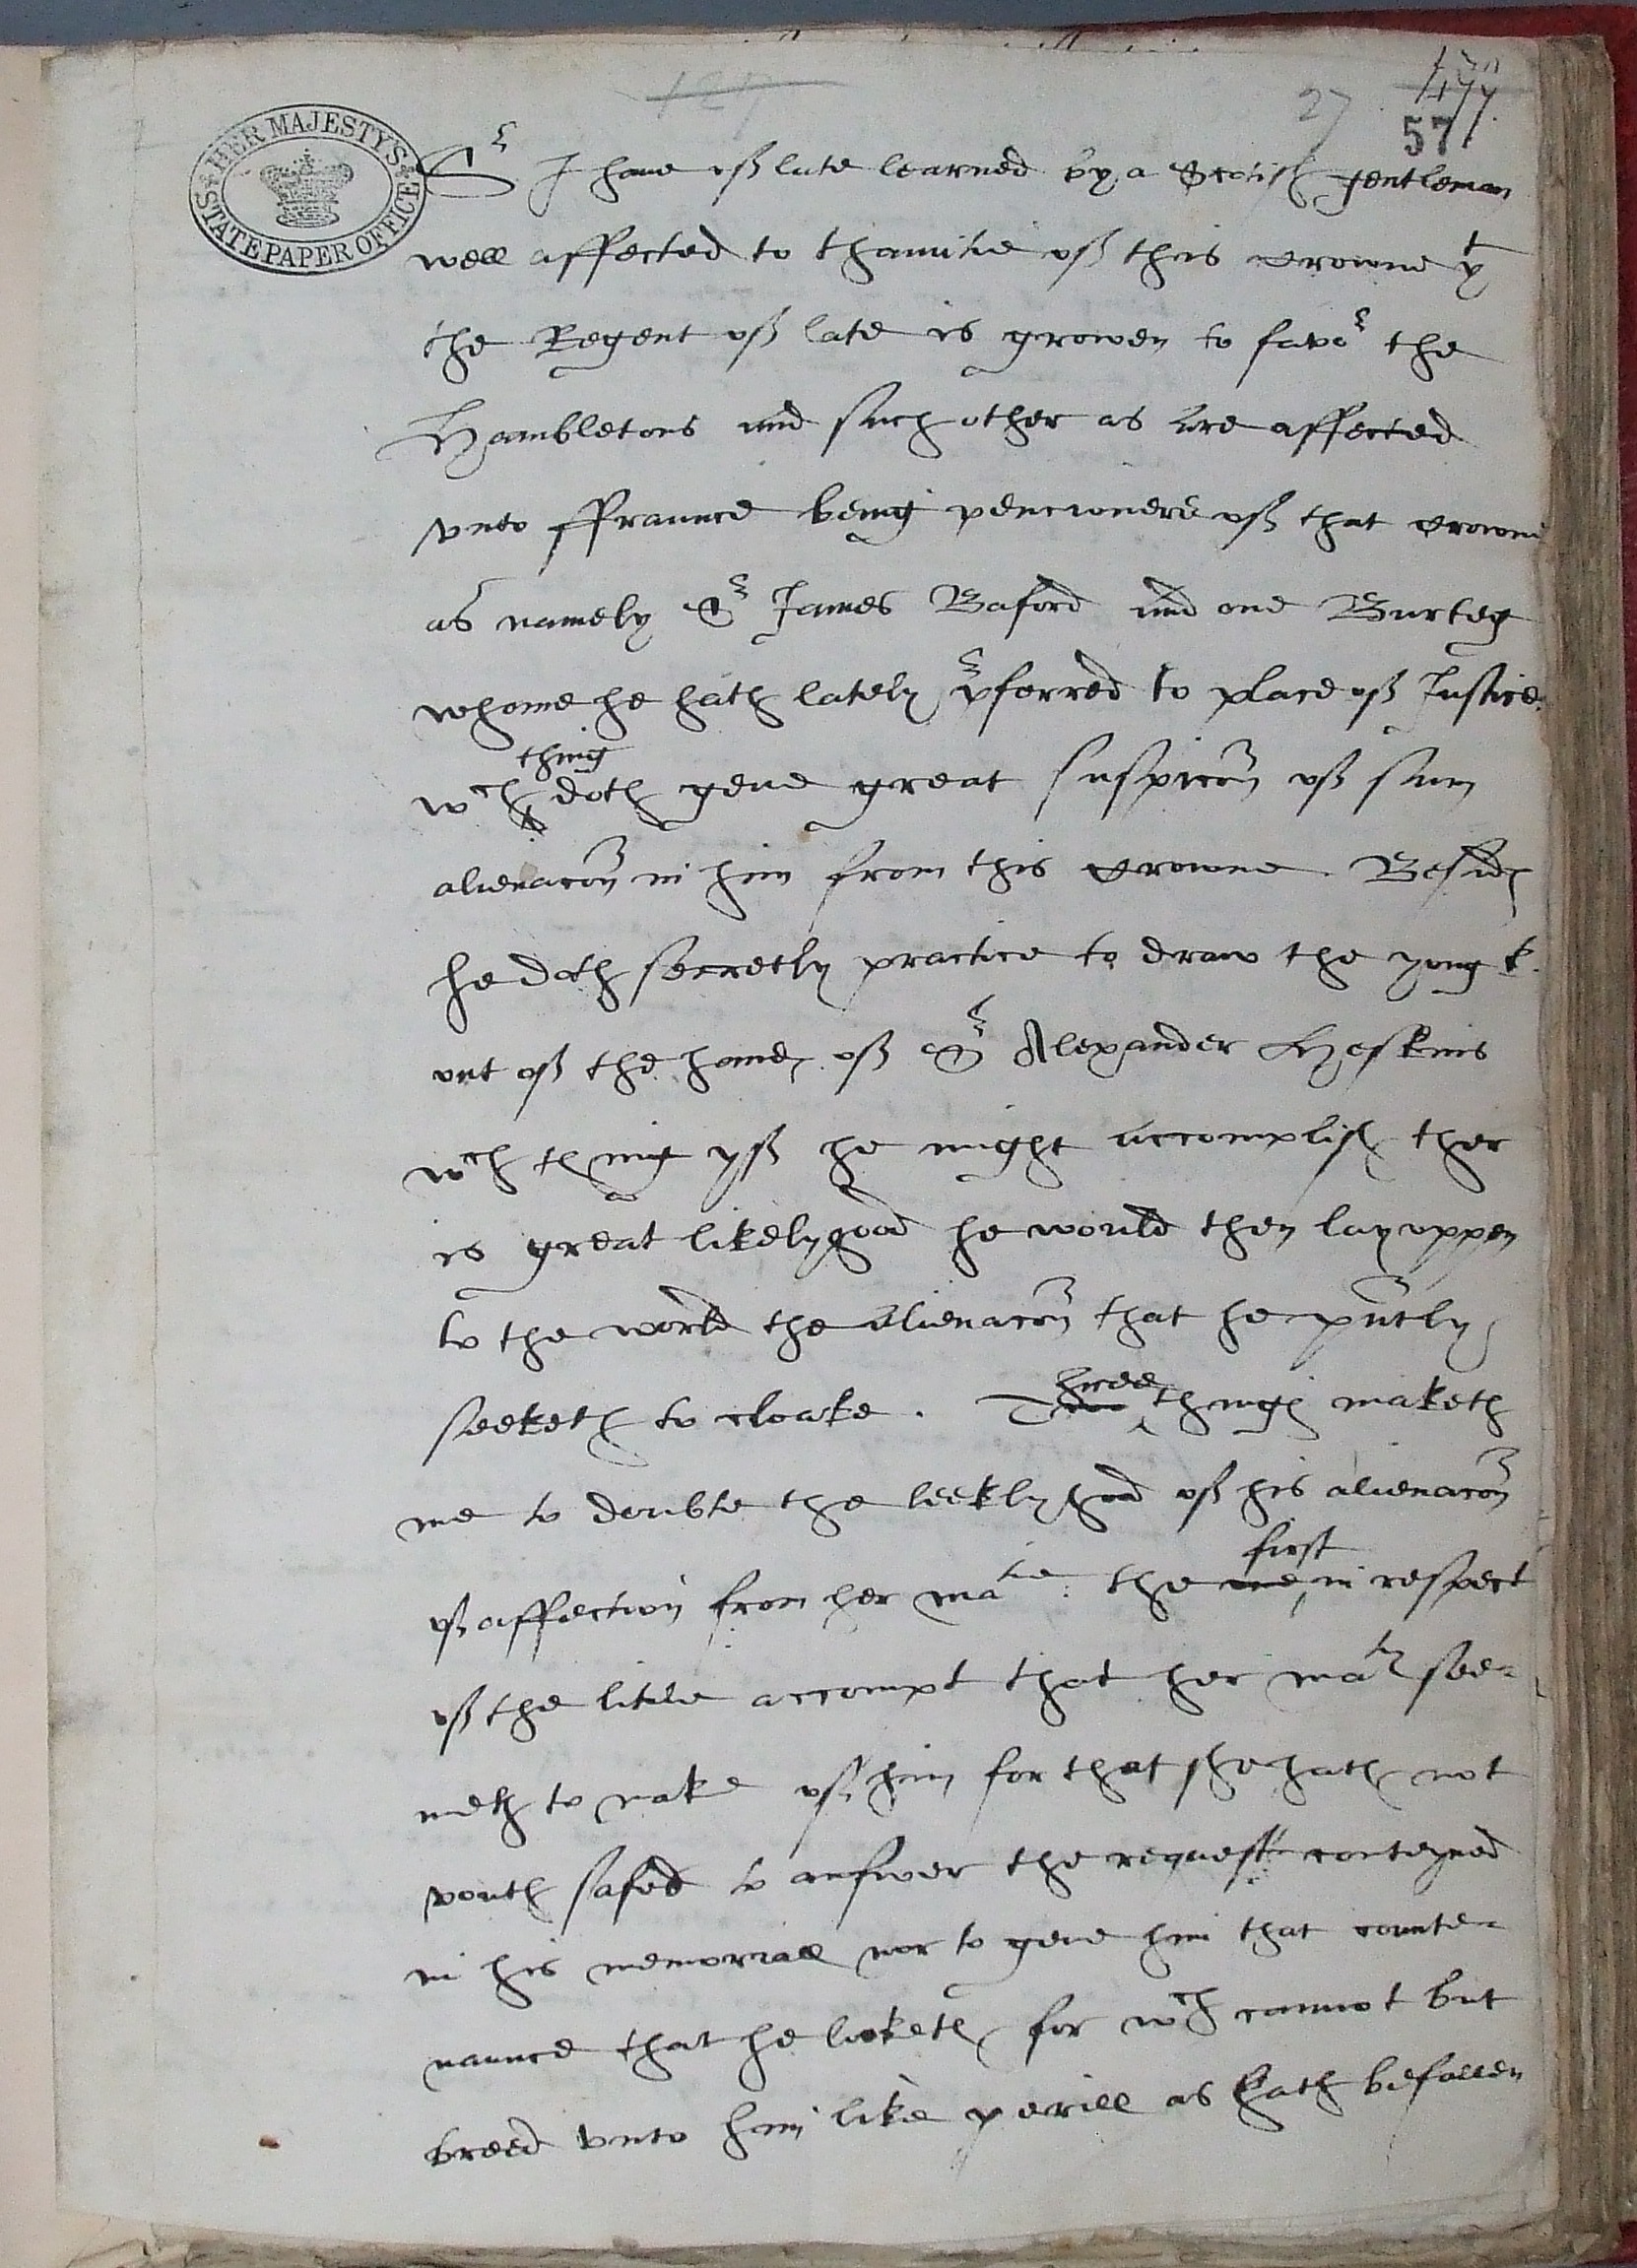 27
177
57
HER MAJESTY'S STATE PAPER OFFICE
Sr I haue off late learned by a Scotish gentleman
well affected to thamitie off this crowne yt
the Regent off late is growen to favor the
Hambletons and such other as are affected
vnto ffraunce being pencioners off that crowne
as namely Sr James Baford and one Burley
whome he hath lately pferred to place off Iustice.
thing
wch doth geue great suspicon off sum
alienacon in him from this crowne. Besides
he doth secretly practice to draw the yong k.
out off the handes off Sr Alexander Heskins
wch thing yff he might accomplish ther
is great likelyhood he would then lay oppen
to the world the alienacon that he pntly
seeketh to cloake. Three things maketh
me to doubte the leeklyhood off his alienacon
first
off affection from her matie: the one in respect
off the litle accompt that her matie see-
meth to make off him for that she hath not
vouth safed to answer the request conteyned
in his memoriall nor to geue him that counte-
naunce that he looketh for wch cannot but
breed vnto him like perill as hath befallen